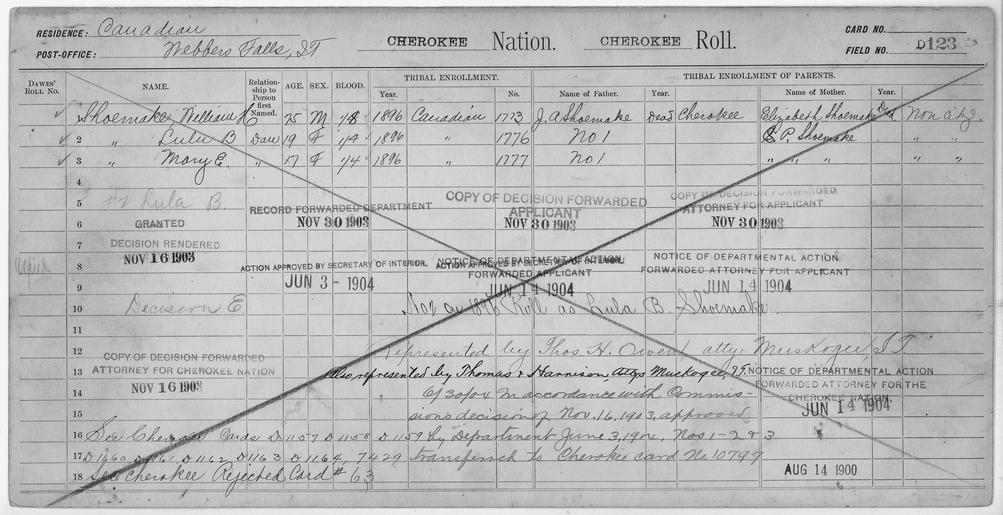 RESIDENCE: Canadian
POST-OFFICE: Webbers Falls, I.T.
CHEROKEE Nation. CHEROKEE Roll.
CARD NO.
FIELD NO. D123
DAWES' ROLL NO. NAME. Relationship to Person first Named. AGE. SEX. BLOOD. TRIBAL ENROLLMENT. Year. No. TRIBAL ENROLLMENT OF PARENTS. Name of Father. Year. Name of Mother. Year.
1 Shoemake, William C 25 M 1/8 1896 Canadian 1773 J.A. Shoemake Dead Cherokee Elizabeth Shoemake Ded Non citz.
2 " Lulu B Dau 19 F 1/4 1896 " 1776 No 1 P. Shoemake " "
3 " Mary E. " 17 F 1/4 1896 " 1777 No 1 " " " " "
4
5 #2 Lula B.
COPY OF DECISION FORWARDED
APPLICANT
NOV 30 1903
COPY OF DECISION FORWARDED
ATTORNEY FOR APPLICANT
NOV 30 1903
6 GRANTED
RECORD FORWARDED DEPARTMENT
NOV 30 1903
7 DECISION RENDERED
NOV 16 1903
8 ACTION APPROVED BY SECRETARY OF INTERIOR.
JUN 3 - 1904
NOTICE OF DEPARTMENTAL ACTION
ACTION APPROVED BY SECRETARY OF INTERIOR.
FORWARDED APPLICANT
JUN 14 1904
NOTICE OF DEPARTMENTAL ACTION
FORWARDED ATTORNEY FOR APPLICANT
JUN 14 1904
9
10 Decision E No2 on 1896 Roll as Lula B. Shoemake.
11
12 Represented by Thos. H. Owen, atty Muskogee, I.T.
COPY OF DECISION FORWARDED
ATTORNEY FOR CHEROKEE NATION
NOV 16 1903
13 Also represented by Thomas & Harrison, Attys Muskogee, I.T.
NOTICE OF DEPARTMENTAL ACTION
FORWARDED ATTORNEY FOR THE
CHEROKEE NATION
JUN 14 1904
14 6/30/04 In accordance with Commis-
15 sions decision of Nov. 16, 1903, approved
16 See Cherokee Cards D1157 D1158 D1159 by Department June 3, 1904, Nos 1-2 & 3
17 D1160 D1161 D1162 D1163 D1164 7429 transferred to Cherokee card No. 10799
18 See Cherokee Rejected Card # 63
AUG 14 1900